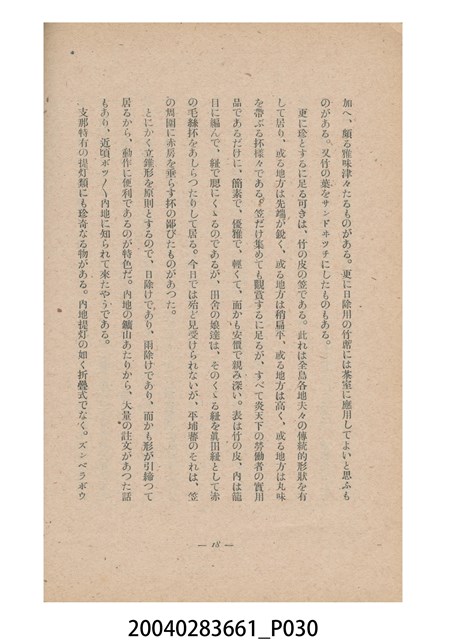 加へ、頗る雅味津々たるものがある。更に日除用の竹簾には茶室に應用してよいと思ふも
のがある。又竹の葉をサンドヰッチにしたものもある。
更に珍とするに足る可きは、竹の皮の笠である。此れは全島各地夫々の傳統的形狀を有
して居り、或る地方は先端が銳く、或る地方は稍扁平、或る地方は高く、或る地方は丸味
を帶ぶる抔樣々である。笠だけ集めても觀賞するに足るが、すべて炎天下の勞働者の實用
品であるだけに、簡素で、優雅で、輕くて、而かも安價で親み深い。表は竹の皮、內は籠
目に編んで、紐で腮にくゝるのであるが、田舍の娘達は、そのくゝる紐を眞田紐として赤
の毛絲抔をあしらつたりして居る。今日では殆ど見受けられないが、平埔蕃のそれは、笠
の周圍に赤房を垂らす抔の鄙びたものがあつた。
とにかく立錐形を原則とするので、日除けであり、雨除けであり、而かも形が引締つて
居るから、動作に便利であるのが特色だ。內地の鑛山あたりから、大量の註文があつた話
もあり、近頃ボツ〳〵內地に知られて來たやうである。
支那特有の提灯類にも珍奇なる物がある。內地提灯の如く折疊式でなく。ズンベラボウ
— 18 —
20040283661_P030